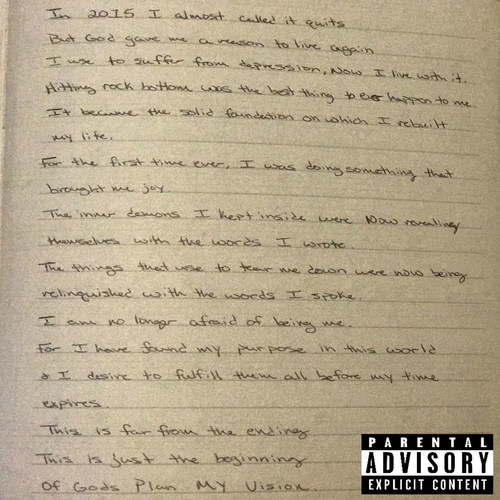 In 2015 I almost called it quits
But God gave me a reason to live again
I use to suffer from depression, Now I live with it.
Hitting rock bottom was the best thing to ever happen to me
It became the solid foundation on which I rebuilt
my life.
For the first time ever, I was doing something that
brought me joy
The inner demons I kept inside were Now revealing
themselves with the words I wrote.
The things that use to tear me down were now being
relinquished with the words I spoke.
I am no longer afraid of being me.
For I have found my purpose in this world
& I desire to fulfill them all before my time
expires.
This is far from the ending
This is just the beginning
Of Gods Plan My Vision.
PARENTAL
ADVISORY
EXPLICIT CONTENT